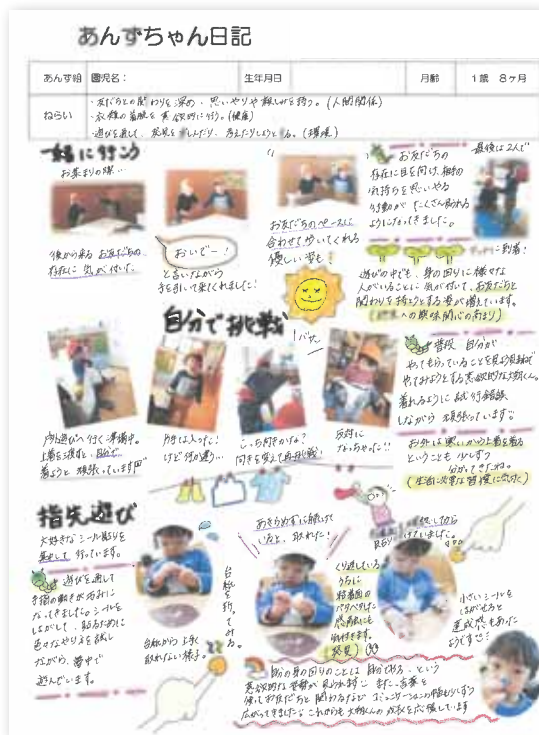 あんずちゃん日記
あんず組
園児名：
生年月日
月齢
1歳 8ヶ月
ねらい
・友だちとの関わりを深め、思いやりや親しみを持つ。(人間関係)
・衣類の着脱を意欲的に行う。(健康)
・遊びを通して、発見を楽しんだり、考えたりしようとする。(環境)
一緒に行こう
お集まりの際…
後から来る お友だちの
存在に 気が付いた
おいでー！
と言いながら
手を引いて来てくれました！
お友だちのペースに
合わせて歩いてくれる
優しい姿も…
お友だちの
存在に目を向け、相手の
気持ちを思いやる
行動が たくさん見られる
ようになってきました。
最後は2人で
に到着！
遊びの中でも、身の回りに様々な
人がいることに 気が付いて、お友だちと
関わりを持とうとする姿が増えています。
への興味関心の高まり)
自分で挑戦
戸外遊びへ行く準備中。
上着を渡すと、自分で
着ようと 頑張っています
片手は入った！
けど何か違う…
こっち向きかな？
向きを変えて再挑戦！
反対に
なっちゃった！！
普段 自分が
やってもらっていることを見よう見まねで
やってみようとする意欲的な
着れるように 試行錯誤
しながら 頑張っています
お外は寒いから上着を着る
ということも 少しずつ
分かってきたね。
(生活に必要な習慣に気付く)
指先遊び
大好きなシール貼りを
集中して 行っています。
遊びを通して
手指の動きが巧みに
なってきました。シールを
はがして、貼るために
色々なやり方を試し
ながら、夢中で
遊んでいます。
台紙から上手く
取れない様子。
台紙を折ってみる。
あきらめずに続けて
いると、取れた！
くり返している
うちに
粘着面の
ペタペタした
感触にも
気付きます。
(発見)
小さいシールを
はがせると
達成感もあった
ようです
自分の身の回りのことは 自分でやる、という
意欲的な姿勢が見られます また、言葉を
使ってお友だちと 関わるなど コミュニケーションの幅も少しずつ
広がってきました。これからも の成長を応援しています